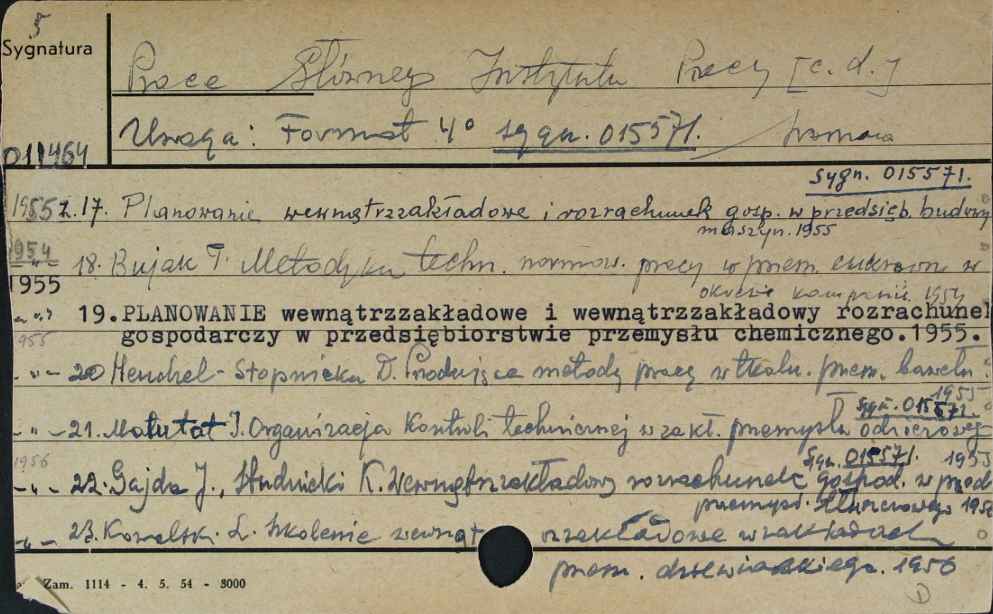 5
Sygnatura
Prace Głównego Instytutu Pracy [c.d.]
Uwaga: Format 4° sygn. 015571.
011464
sygn. 015571.
1955 z. 17. Planowanie wewnątrzzakładowe i rozrachunek gosp. w przedsięb. budowy
maszyn. 1955
1954
" 18. Bujak T. Metodyka techn. normow. pracy w przem. cukrown. w
okresie kampanii. 1954
1955
" 19. PLANOWANIE wewnątrzzakładowe i wewnątrzzakładowy rozrachunek
gospodarczy w przedsiębiorstwie przemysłu chemicznego. 1955.
1955
- " - 20 Henchel-Stopnicka D. Przodujące metody pracy w tkaln. przem. bawełn.
1955
sygn. 015571.
- " - 21. Matutat J. Organizacja kontroli technicznej w zakł. przemysłu odzieżoweg
1955
1956
sygn. 015571.
- " - 22. Gajda J., Studnicki K. Wewnątrzzakładowy rozrachunek gospod. w przeds.
przemysł. 1956
- " - 23. Kowalsk. L. Szkolenie wewnątrzzakładowe w zakładach
przem. drzewnego. 1956
Zam. 1114 - 4. 5. 54 - 8000